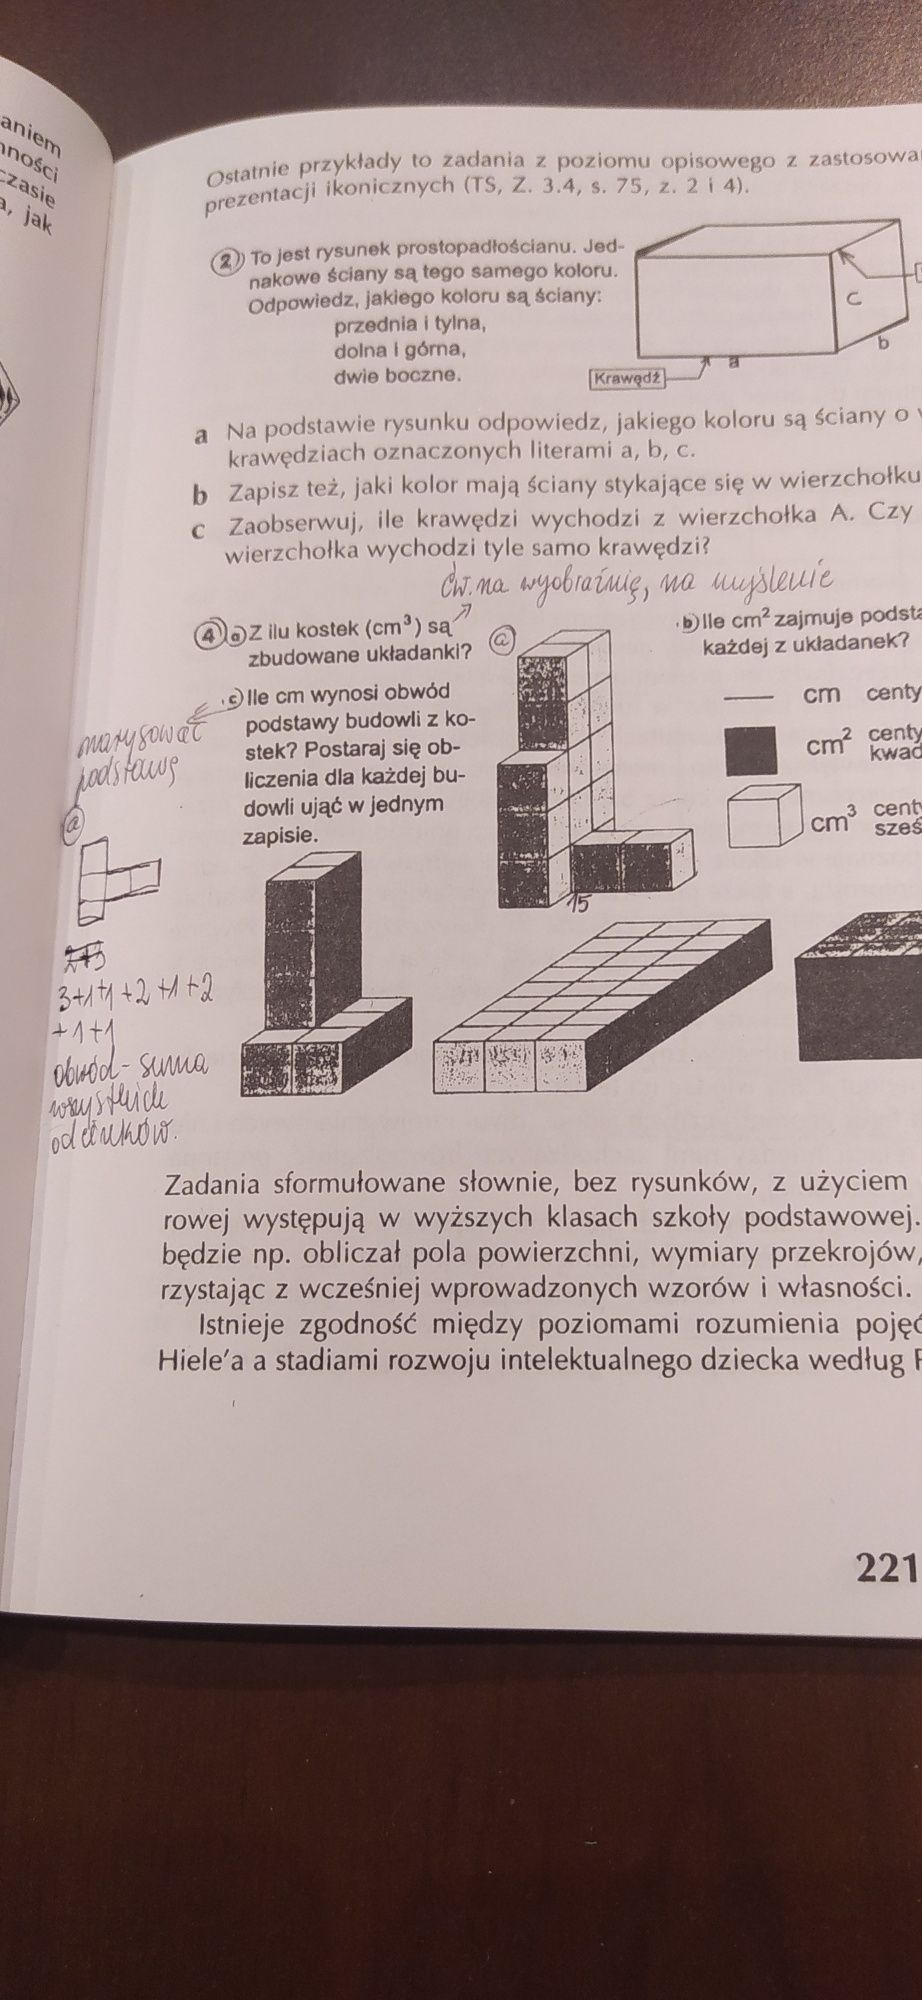 aniem
czasie
a, jak
Ostatnie przykłady to zadania z poziomu opisowego z
prezentacji ikonicznych (TS, Z. 3.4, s. 75, z. 2 i 4).
2) To jest rysunek prostopadłościanu. Jed-
nakowe ściany są tego samego koloru.
Odpowiedz, jakiego koloru są ściany:
przednia i tylna,
dolna i górna,
dwie boczne.
c
b
a
Krawędź
a Na podstawie rysunku odpowiedz, jakiego koloru są ściany o
krawędziach oznaczonych literami a, b, c.
b Zapisz też, jaki kolor mają ściany stykające się w wierzchołku
c Zaobserwuj, ile krawędzi wychodzi z wierzchołka A. Czy
wierzchołka wychodzi tyle samo krawędzi?
ćw. na wyobraźnię, na myślenie
4 a) Z ilu kostek (cm³) są
zbudowane układanki?
a
b) Ile cm² zajmuje
każdej z układanek?
c) Ile cm wynosi obwód
podstawy budowli z ko-
stek? Postaraj się ob-
liczenia dla każdej bu-
dowli ująć w jednym
zapisie.
cm
cm²
cm³
narysować
podstawę
a
15
3+1+1+2+1+2
+1+1
obwód - suma
wszystkich
odcinków.
Zadania sformułowane słownie, bez rysunków, z użyciem
rowej występują w wyższych klasach szkoły podstawowej.
będzie np. obliczał pola powierzchni, wymiary przekrojów,
rzystając z wcześniej wprowadzonych wzorów i własności.
Istnieje zgodność między poziomami rozumienia
Hiele'a a stadiami rozwoju intelektualnego dziecka według
221